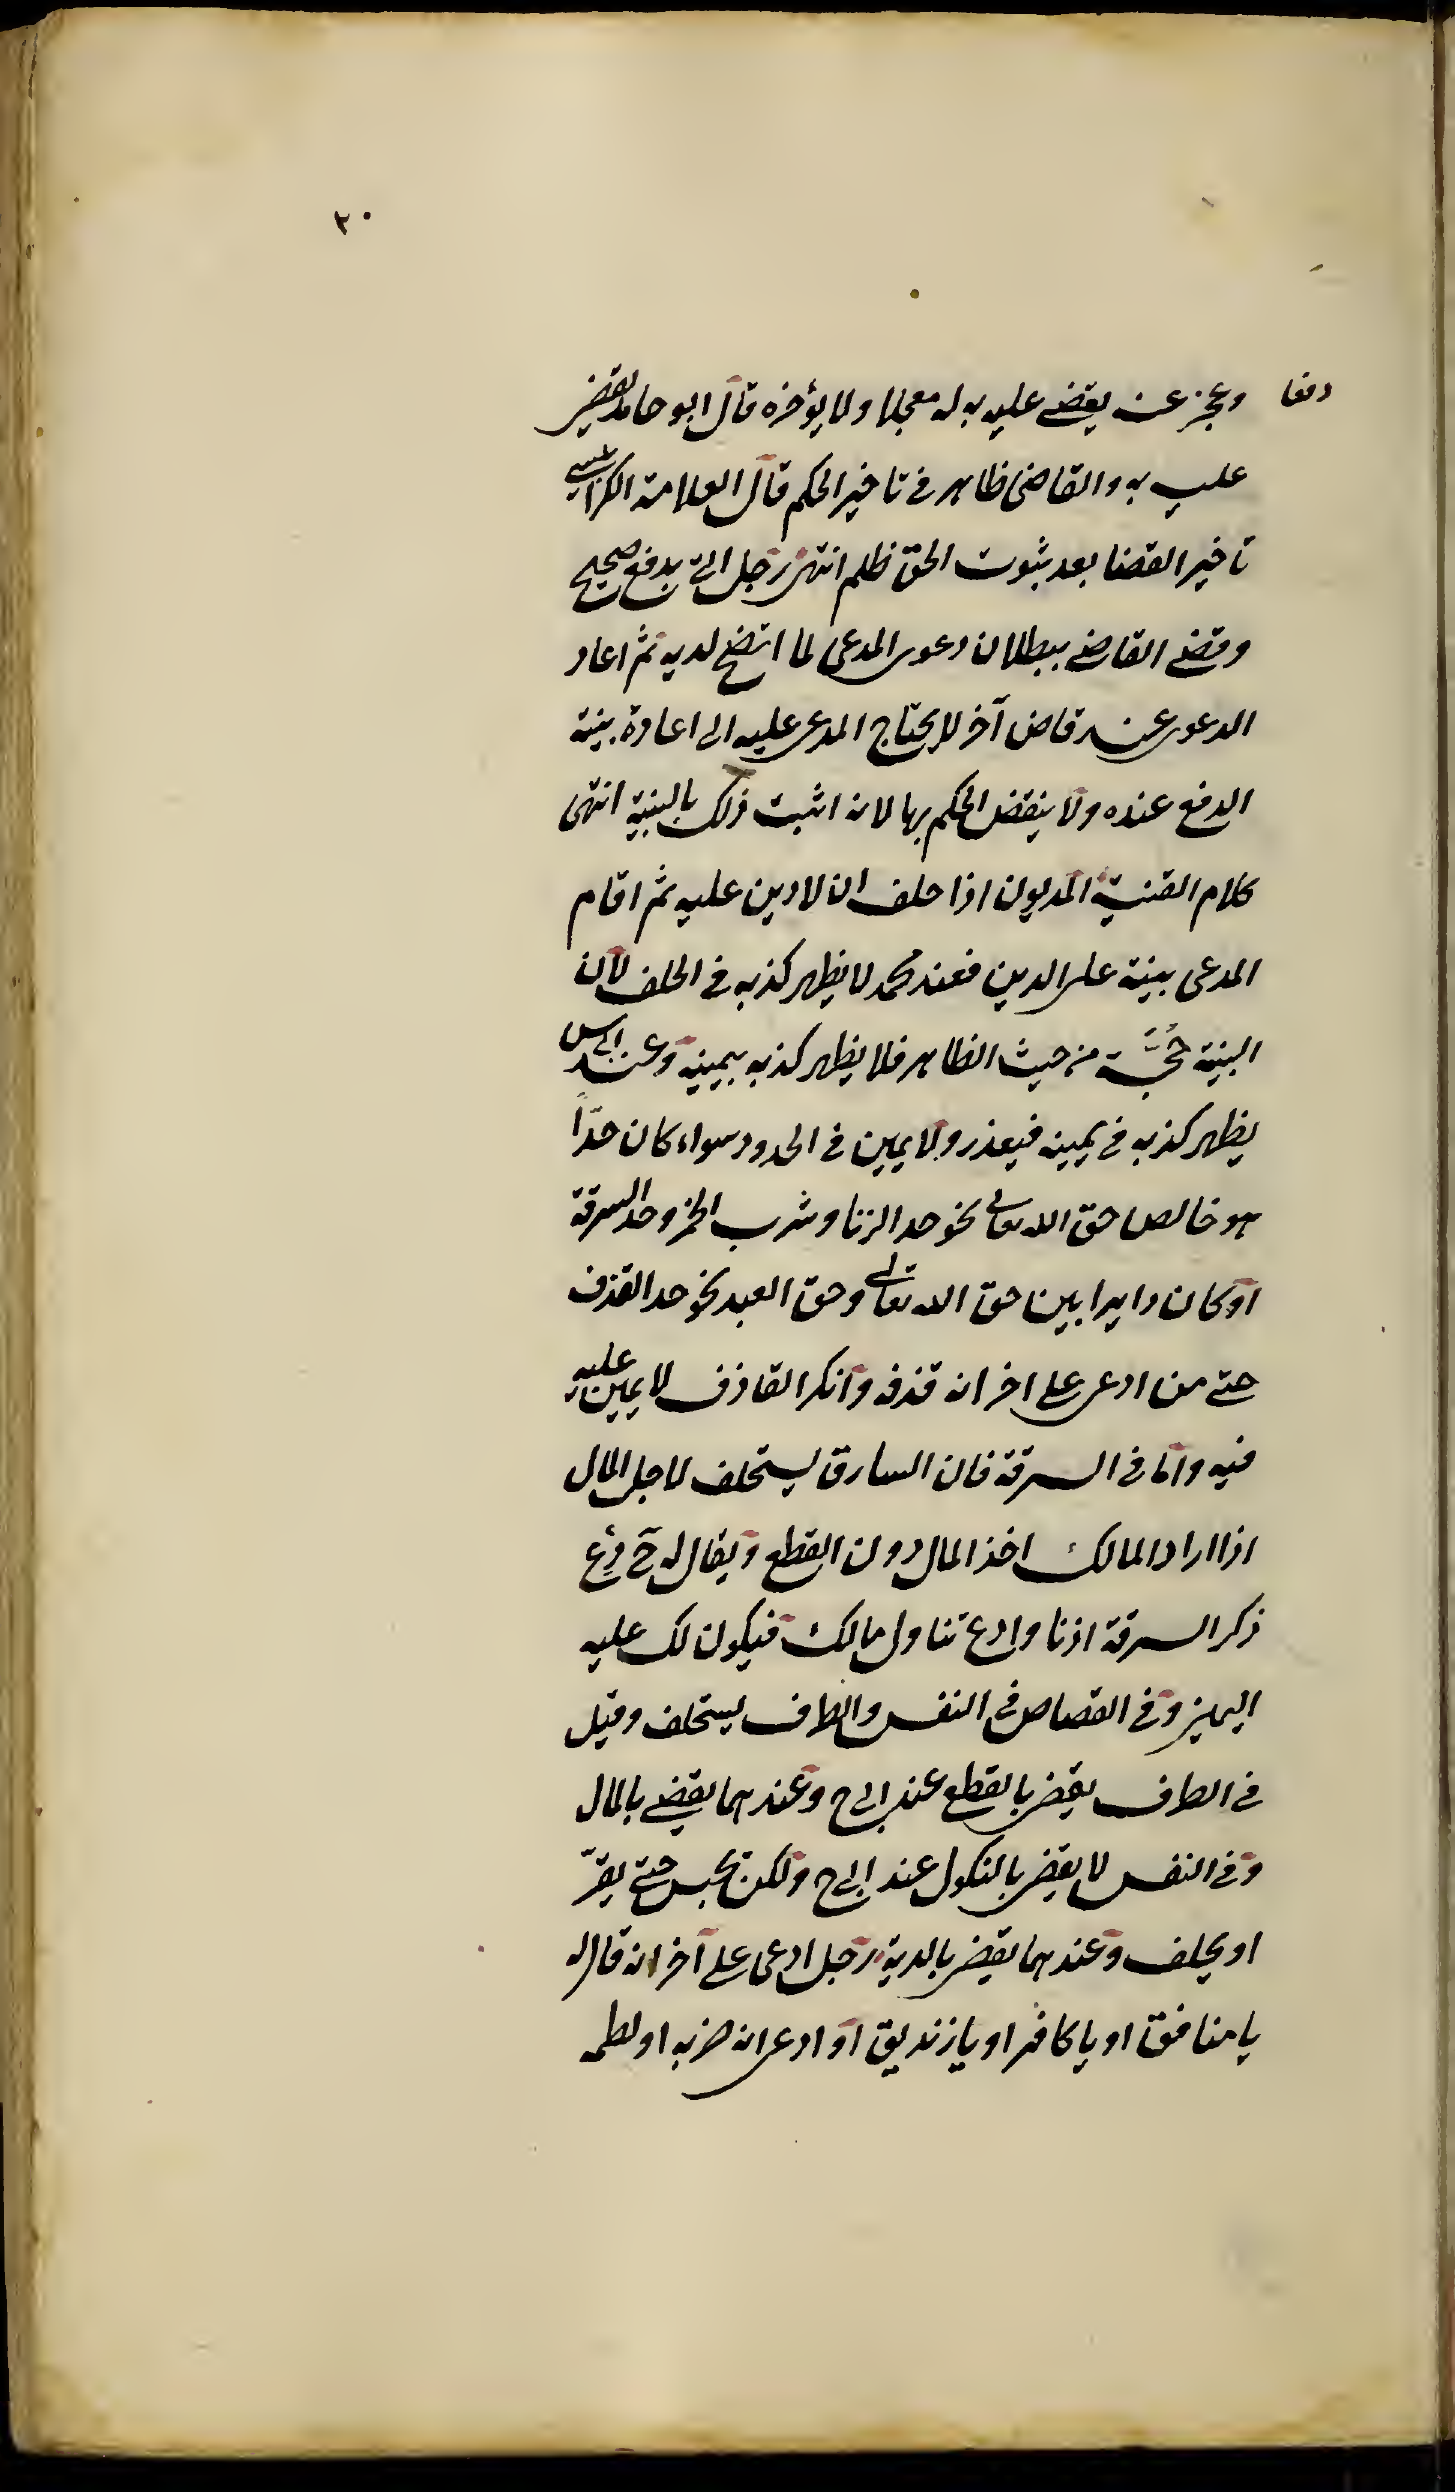 ٣٠
دفعا وعجز عنه يقضى عليه به له معجلا ولا يؤخره قال ابو حامد يقضى
عليه به والقاضى ظاهر فى تاخير الحكم قال العلامة الكرابيسى
تاخير القضا بعد ثبوت الحق ظلم انتهى رجل اتى بدفع صحيح
وقضى القاضى ببطلان دعوى المدعى لما اتضح لديه ثم اعاد
الدعوى عند قاض آخر لا يحتاج المدعى عليه الى اعادة بينة
الدفع عنده ولا ينقض الحكم بها لانه اثبت ذلك بالبينة انتهى
كلام القنية المديون اذا حلف ان لا دين عليه ثم اقام
المدعى بينة على الدين فعند محمد لا يظهر كذبه فى الحلف لان
البينة حُجَّة من حيث الظاهر فلا يظهر كذبه بيمينه وعند ابى س
يظهر كذبه فى يمينه فيعذر ولا يمين فى الحدود سواء كان حدّاً
هو خالص حق الله تعالى نحو حد الزنا وشرب الخمر وحد السرقة
او كان دايرا بين حق الله تعالى وحق العبد نحو حد القذف
حتى من ادعى على اخر انه قذفه وانكر القاذف لا يمين عليه
فيه واما فى السرقة فان السارق يستحلف لاجل المال
اذا اراد المالك اخذ المال دون القطع ويقال له ح دع
ذكر السرقة اذنا وادع تناول مالك فيكون لك عليه
اليمين وفى القصاص فى النفس والطرف يستحلف وقيل
فى الطرف يقضى بالقطع عند ابى ح وعندهما يقضى بالمال
وفى النفس لا يقضى بالنكول عند ابى ح ولكن يحبس حتى يقرّ
او يحلف وعندهما يقضى بالدية رجل ادعى على آخر انه قال له
يا منافق او يا كافر او يا زنديق او ادعى انه ضربه او لطمه